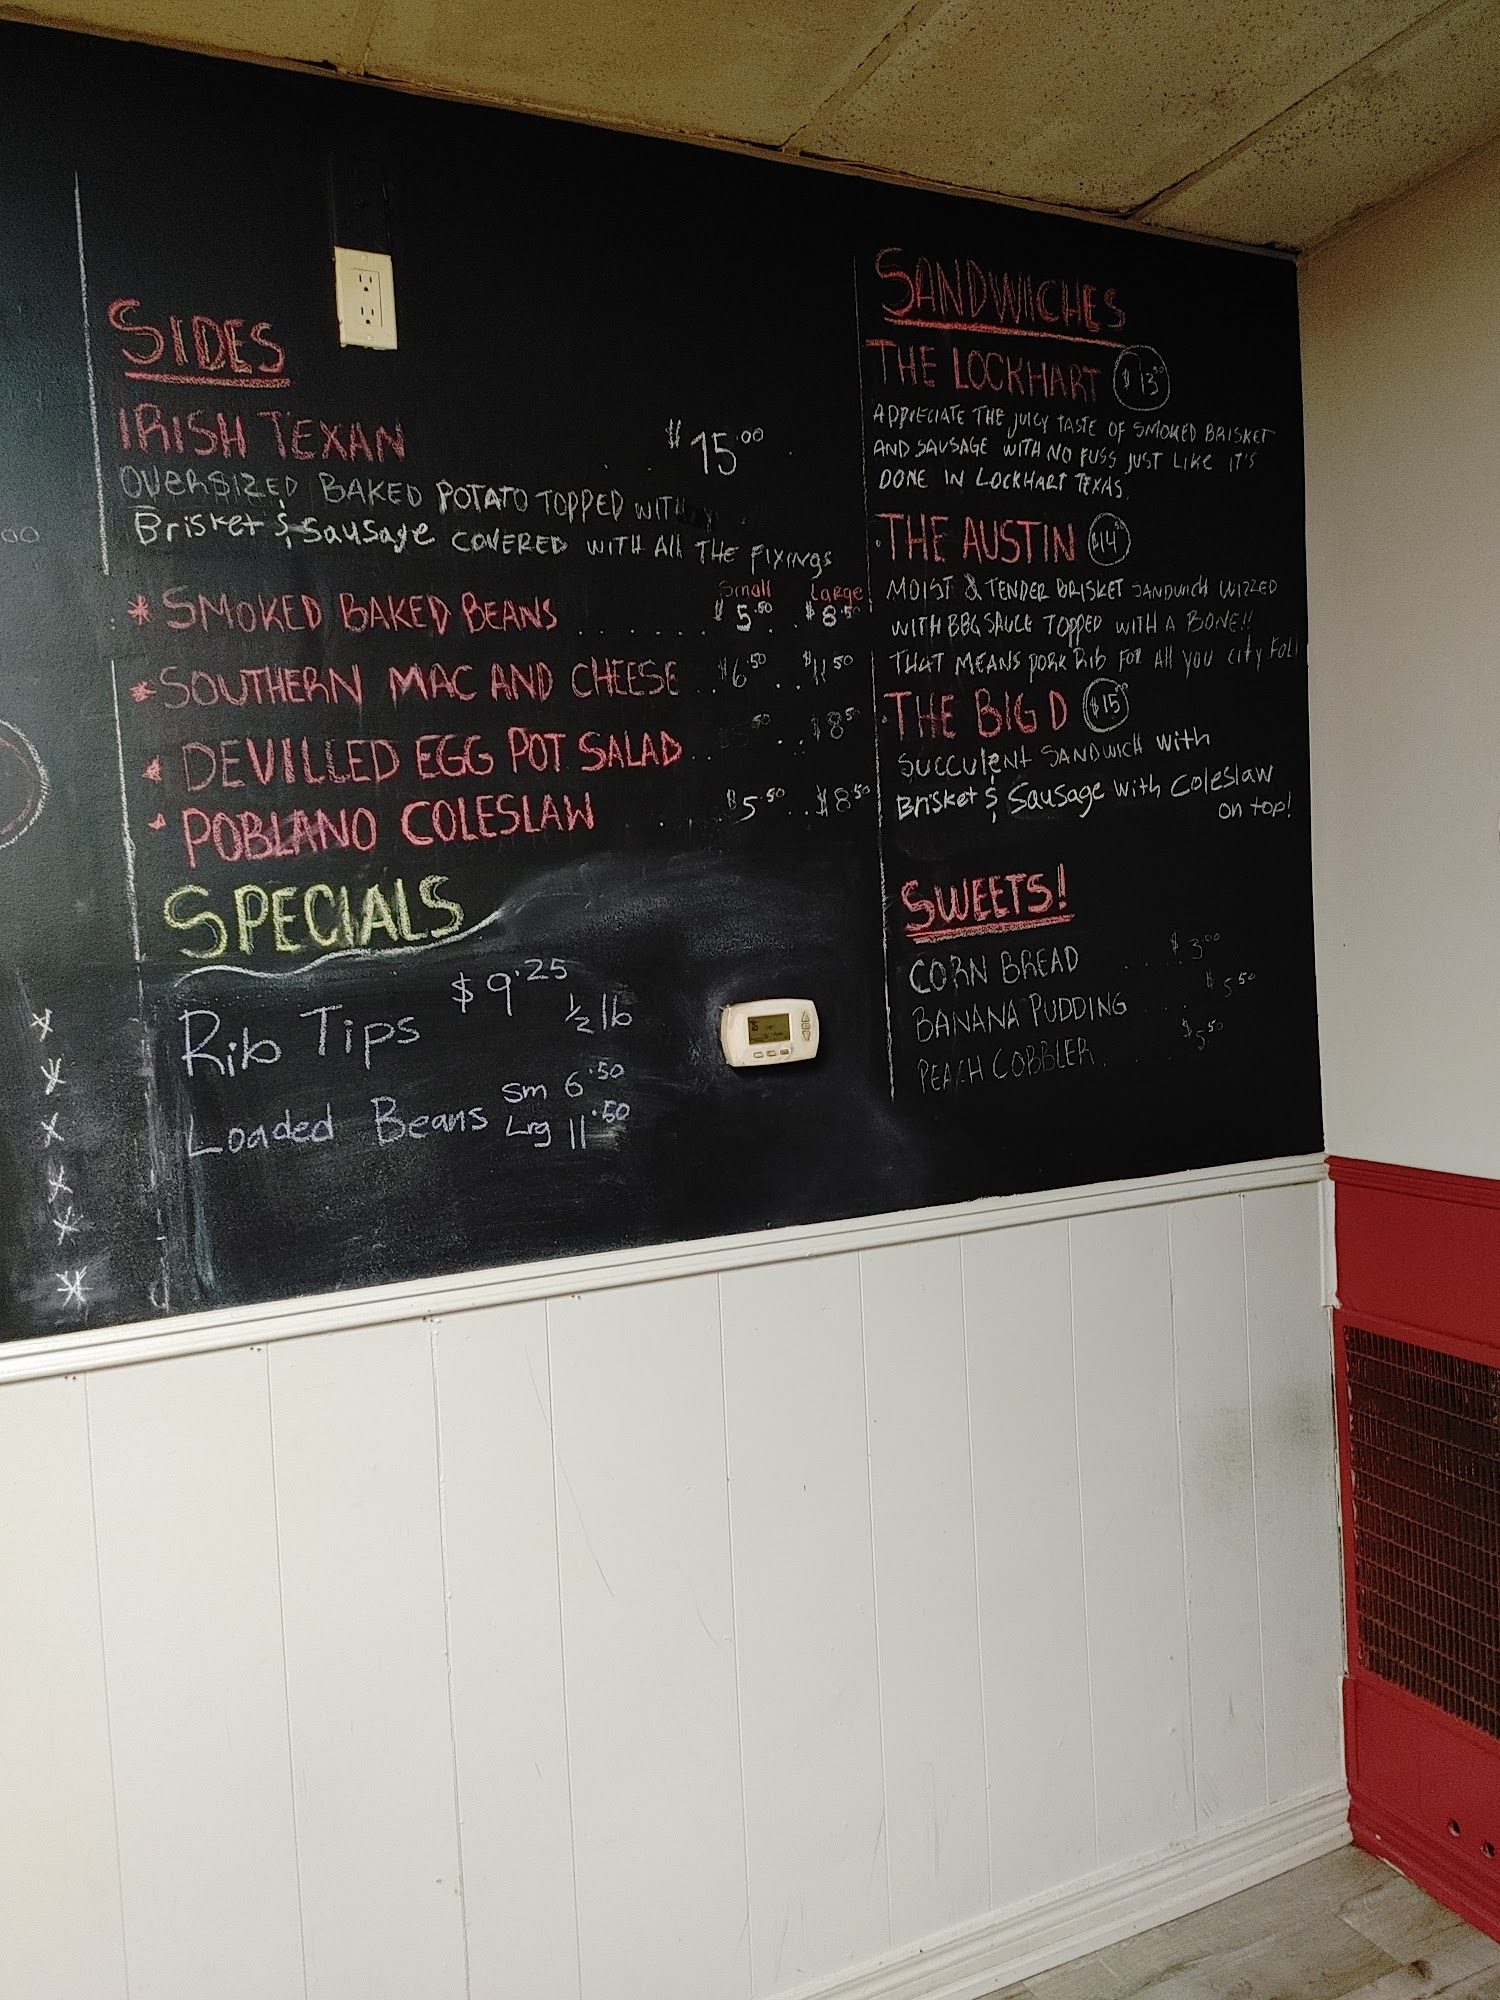 SIDES
IRISH TEXAN $15.00
OVERSIZED BAKED POTATO TOPPED WITH
Brisket & Sausage COVERED WITH All THE Fixings
Small Large
* SMOKED BAKED BEANS ....... $5.50 .. $8.50
* SOUTHERN MAC AND CHEESE .. $6.50 .. $11.50
* DEVILLED EGG POT SALAD .. .50 .. $8.50
* POBLANO COLESLAW $5.50 .. $8.50
SPECIALS
Rib Tips $9.25 1/2 lb
Loaded Beans Sm 6.50
Lrg 11.50
SANDWICHES
THE LOCKHART $13
APPRECIATE THE JUICY TASTE OF SMOKED BRISKET
AND SAUSAGE WITH NO FUSS JUST LIKE IT'S
DONE IN LOCKHART TEXAS.
THE AUSTIN $14
MOIST & TENDER BRISKET SANDWICH WIZZED
WITH BBQ SAUCE TOPPED WITH A BONE!!
THAT MEANS PORK RIB FOR All YOU CITY
THE BIG D $15
SUCCULENT SANDWICH with
Brisket & Sausage with Coleslaw
on top!
SWEETS!
CORN BREAD ... $3.00
BANANA PUDDING .. $5.50
PEACH COBBLER. .. $5.50
00